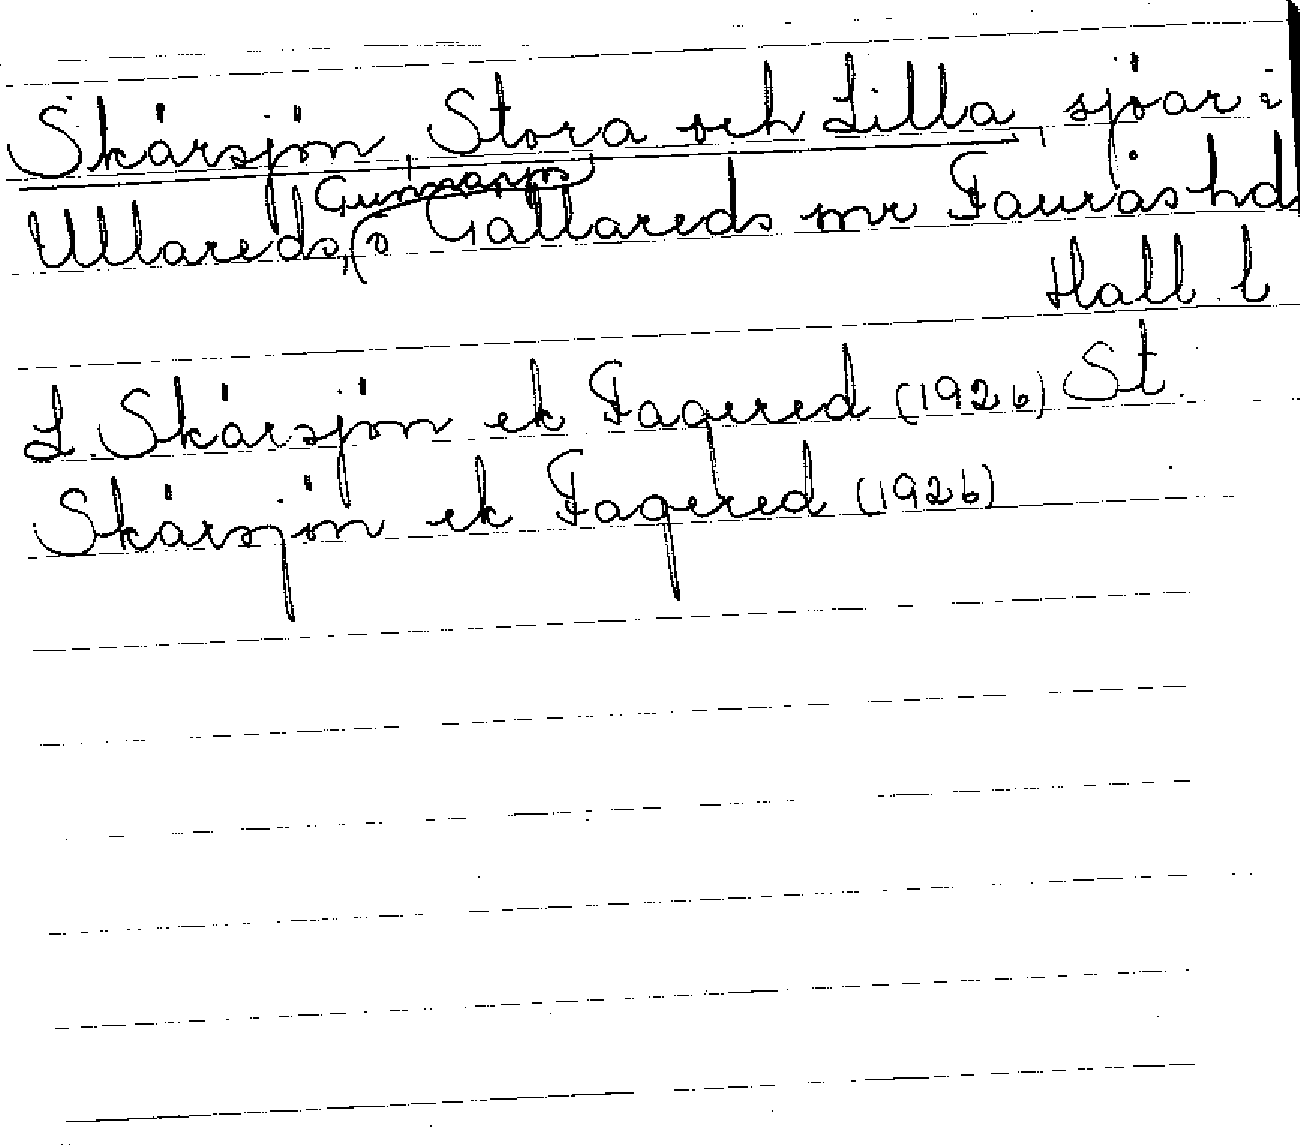 Skärsjön, Stora och Lilla, sjöar i
Ullareds, Gunnarps o Gällareds snr Faurås hd
Hall. l
L. Skärsjön ek Fagered (1926) St.
Skärsjön ek Fagered (1926)